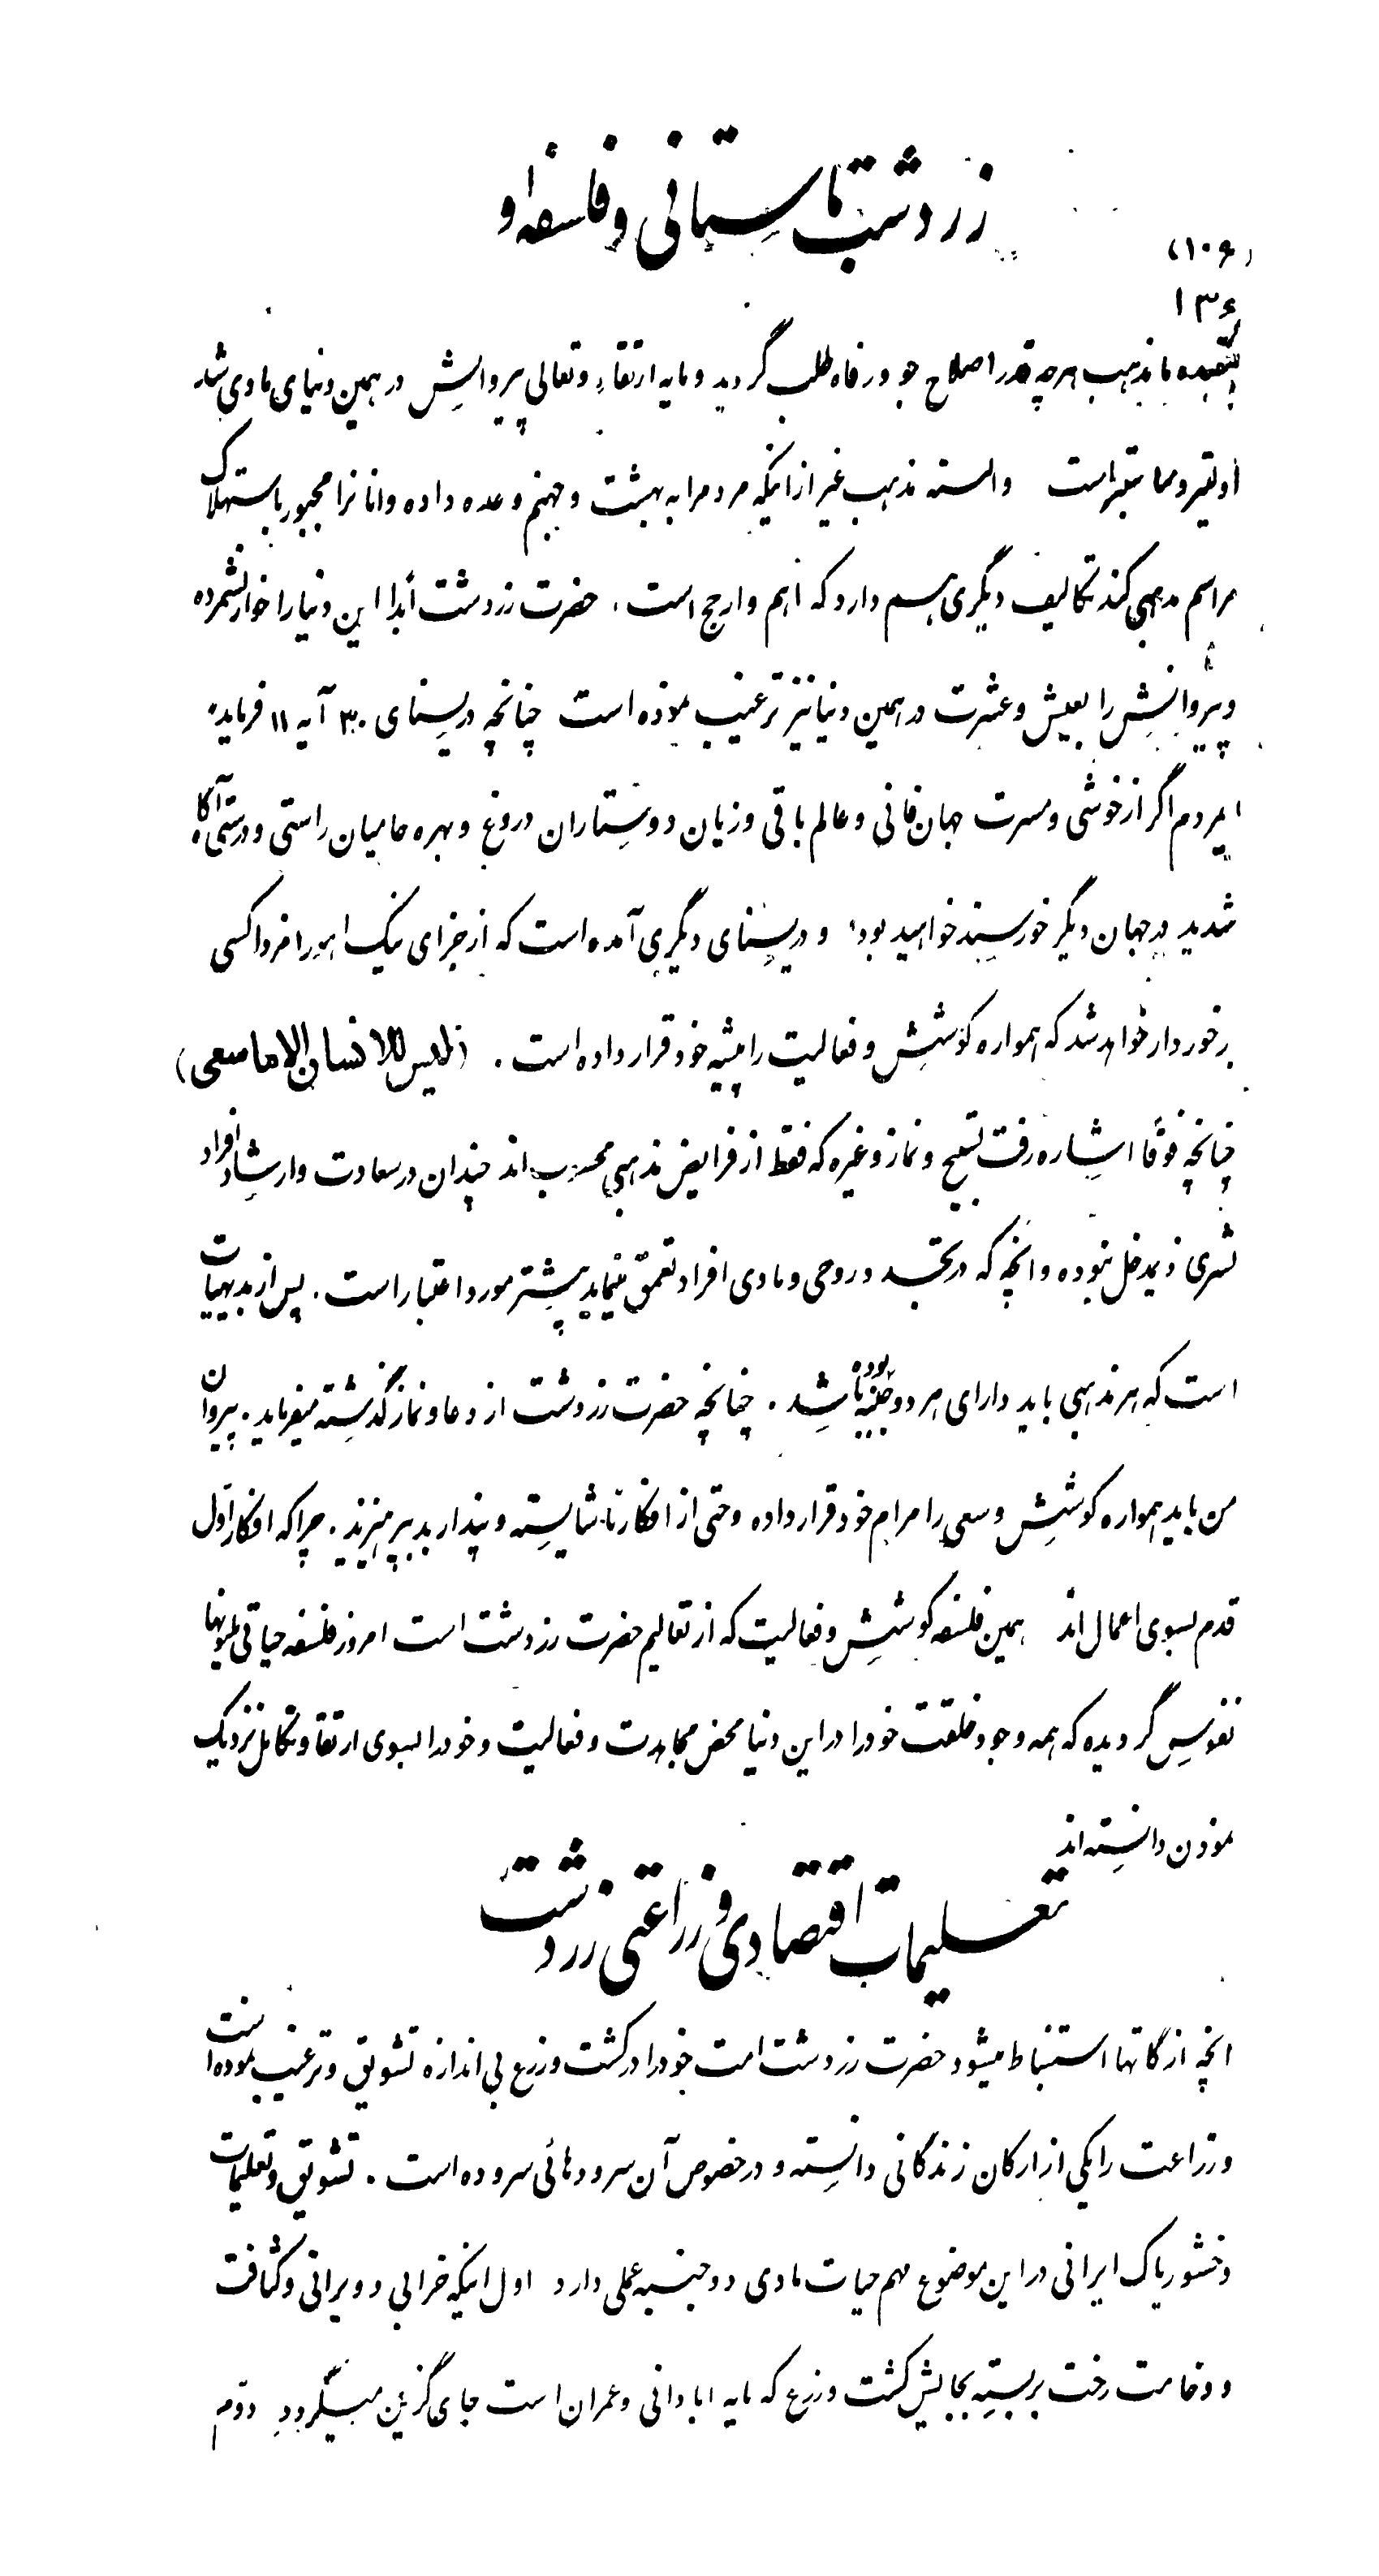 زردشت باستانی و فلسفه او
(۱۰۶)
۱۳۶
بعقیده ما مذهب هرچه قدر اصلاح جو و رفاه طلب گردید و مایه ارتقاء و تعالی پیروانش در همین دنیای مادی شد
اولیتر و ممتازتر است والسته مذهب غیر از اینکه مردم را به بهشت و جهنم وعده داده وانانرا مجبور باستهلاک
مراسم مذهبی کند تکالیف دیگری هم دارد که اهم وارجح است. حضرت زردشت ابدا این دنیا را خوار نشمرده
و پیروانش را بعیش و عشرت در همین دنیا نیز ترغیب نموده است چنانچه در یسنای ۳۰ آیه ۱۱ فرماید"
ایمردم اگر از خوشی و مسرت جهان فانی و عالم باقی و زیان دوستاران دروغ و بهره حامیان راستی و درستی آگاه
شدید در جهان دیگر خورسند خواهید بود" و در یسنای دیگری آمده است که از جزای نیک اهورامزدا کسی
برخوردار خواهد شد که همواره کوشش و فعالیت را پیشه خود قرار داده است. (لیس للانسان الا ما سعی)
چنانچه فوقا اشاره رفت تسبیح و نماز و غیره که فقط از فرایض مذهبی محسوب اند چندان در سعادت و ارشاد افراد
بشری ذیمدخل نبوده و انچه که در تجسد و روحی و مادی افراد تعمق مینماید بیشتر مورد اعتبار است. پس از بدیهیات
است که هر مذهبی باید دارای هر دو جنبه بوده باشد. چنانچه حضرت زردشت از دعا و نماز گذشته میفرماید. پیروان
من باید همواره کوشش و سعی را مرام خود قرار داده و حتی از افکار ناشایسته و پندار بد بپرهیزند. چراکه افکار اول
قدم بسوی اعمال اند همین فلسفه کوشش و فعالیت که از تعالیم حضرت زردشت است امروز فلسفه حیاتی ملیونها
نفوس گردیده که همه وجود خلقت خود را در این دنیا محض مجاهدت و فعالیت و خود را بسوی ارتقا و تکامل نزدیک
نمودن دانسته اند
تعلیمات اقتصادی و زراعتی زردشت
انچه از گاتها استنباط میشود حضرت زردشت امت خود را در کشت و زرع بی اندازه تشویق و ترغیب نموده است
و زراعت را یکی از ارکان زندگانی دانسته و در خصوص آن سرودهائی سروده است. تشویق و تعلیمات
وخشور پاک ایرانی در این موضوع مهم حیات مادی دو جنبه عملی دارد اول اینکه خرابی و ویرانی و کثافت
و وخامت رخت بربسته بجایش کشت و زرع که مایه ابادانی و عمران است جای گزین میگردد دوم